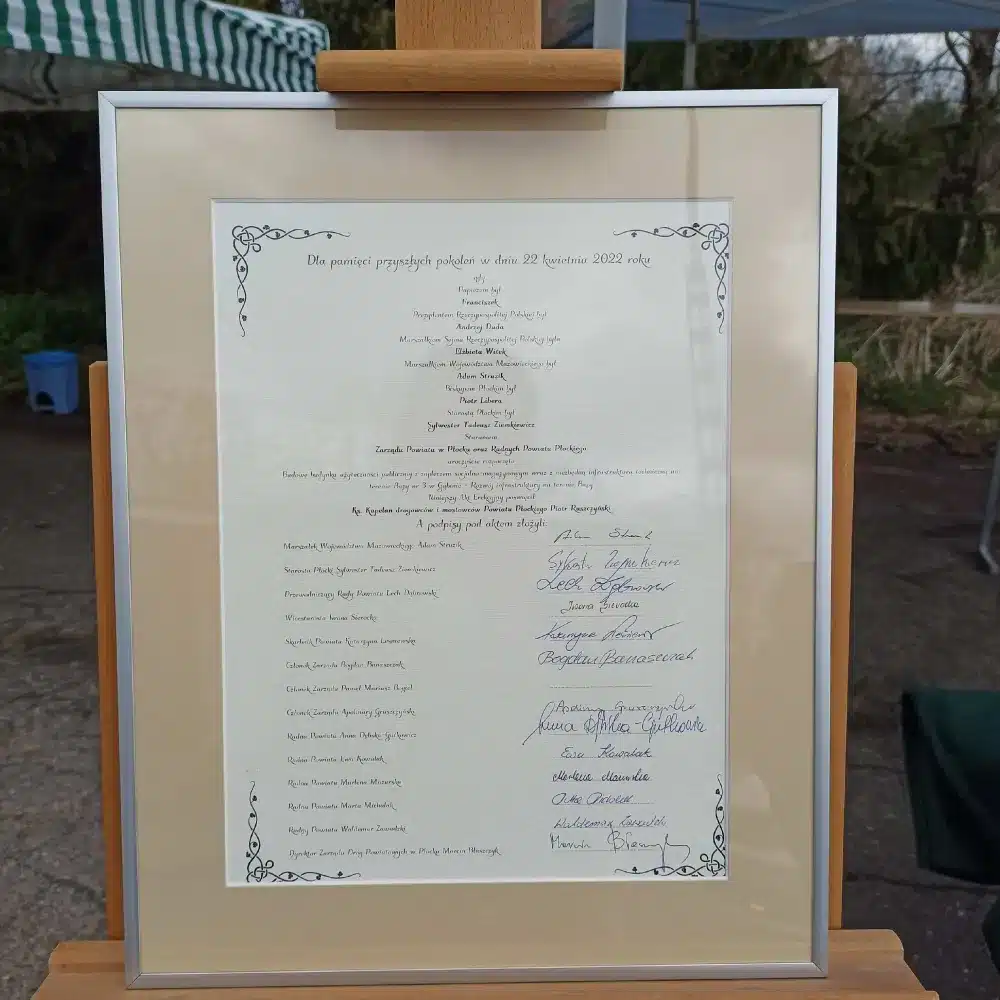 Dla pamięci przyszłych pokoleń w dniu 22 kwietnia 2022 roku
gdy
Papieżem był
Franciszek
Prezydentem Rzeczypospolitej Polskiej był
Andrzej Duda
Marszałkiem Sejmu Rzeczypospolitej Polskiej była
Elżbieta Witek
Marszałkiem Województwa Mazowieckiego był
Adam Struzik
Biskupem Płockim był
Piotr Libera
Starostą Płockim był
Sylwester Tadeusz Ziemkiewicz
Staraniem
Zarządu Powiatu w Płocku oraz Radnych Powiatu Płockiego
uroczyście rozpoczęto
Budowę budynku użyteczności publicznej z zapleczem socjalno-magazynowym wraz z niezbędną infrastrukturą techniczną na
terenie Bazy nr 3 w - Rozwój infrastruktury na terenie Bazy
Niniejszy Akt Erekcyjny poświęcił
Ks. Kapelan drogowców i mostowców Powiatu Płockiego Piotr
A podpisy pod aktem złożyli:
Marszałek Województwa Mazowieckiego Adam Struzik
Starosta Płocki Sylwester Tadeusz Ziemkiewicz Sylwester Ziemkiewicz
Przewodniczący Rady Powiatu Lech Dąbrowski Lech Dąbrowski
Wicestarosta Iwona Sierocka Iwona Sierocka
Skarbnik Powiatu Katarzyna Katarzyna
Członek Zarządu Bogdan Banaszczak Bogdan Banaszczak
Członek Zarządu Paweł Mariusz
Członek Zarządu Apolinary Gruszczyński Apolinary Gruszczyński
Radna Powiatu Anna
Radna Powiatu Ewa Kowalak Ewa Kowalak
Radna Powiatu Marlena Mazurska Marlena Mazurska
Radna Powiatu Marta Michalak
Radny Powiatu Waldemar Zawadzki Waldemar
Dyrektor Zarządu Dróg Powiatowych w Płocku Marcin Błaszczyk Marcin